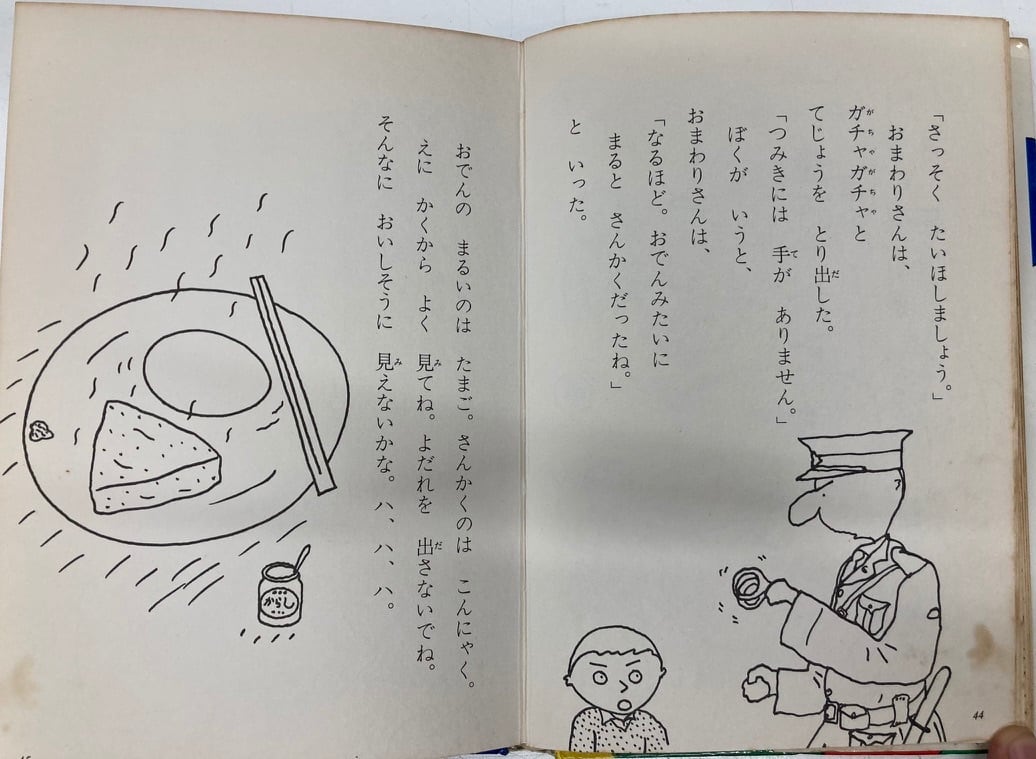 「さっそく　たいほしましょう。」
おまわりさんは、
ガチャガチャと
てじょうを　とり出した。
「つみきには　手が　ありません。」
ぼくが　いうと、
おまわりさんは、
「なるほど。おでんみたいに
まると　さんかくだったね。」
と　いった。
44
おでんの　まるいのは　たまご。さんかくのは　こんにゃく。
えに　かくから　よく　見てね。よだれを　出さないでね。
そんなに　おいしそうに　見えないかな。ハ、ハ、ハ。
からし